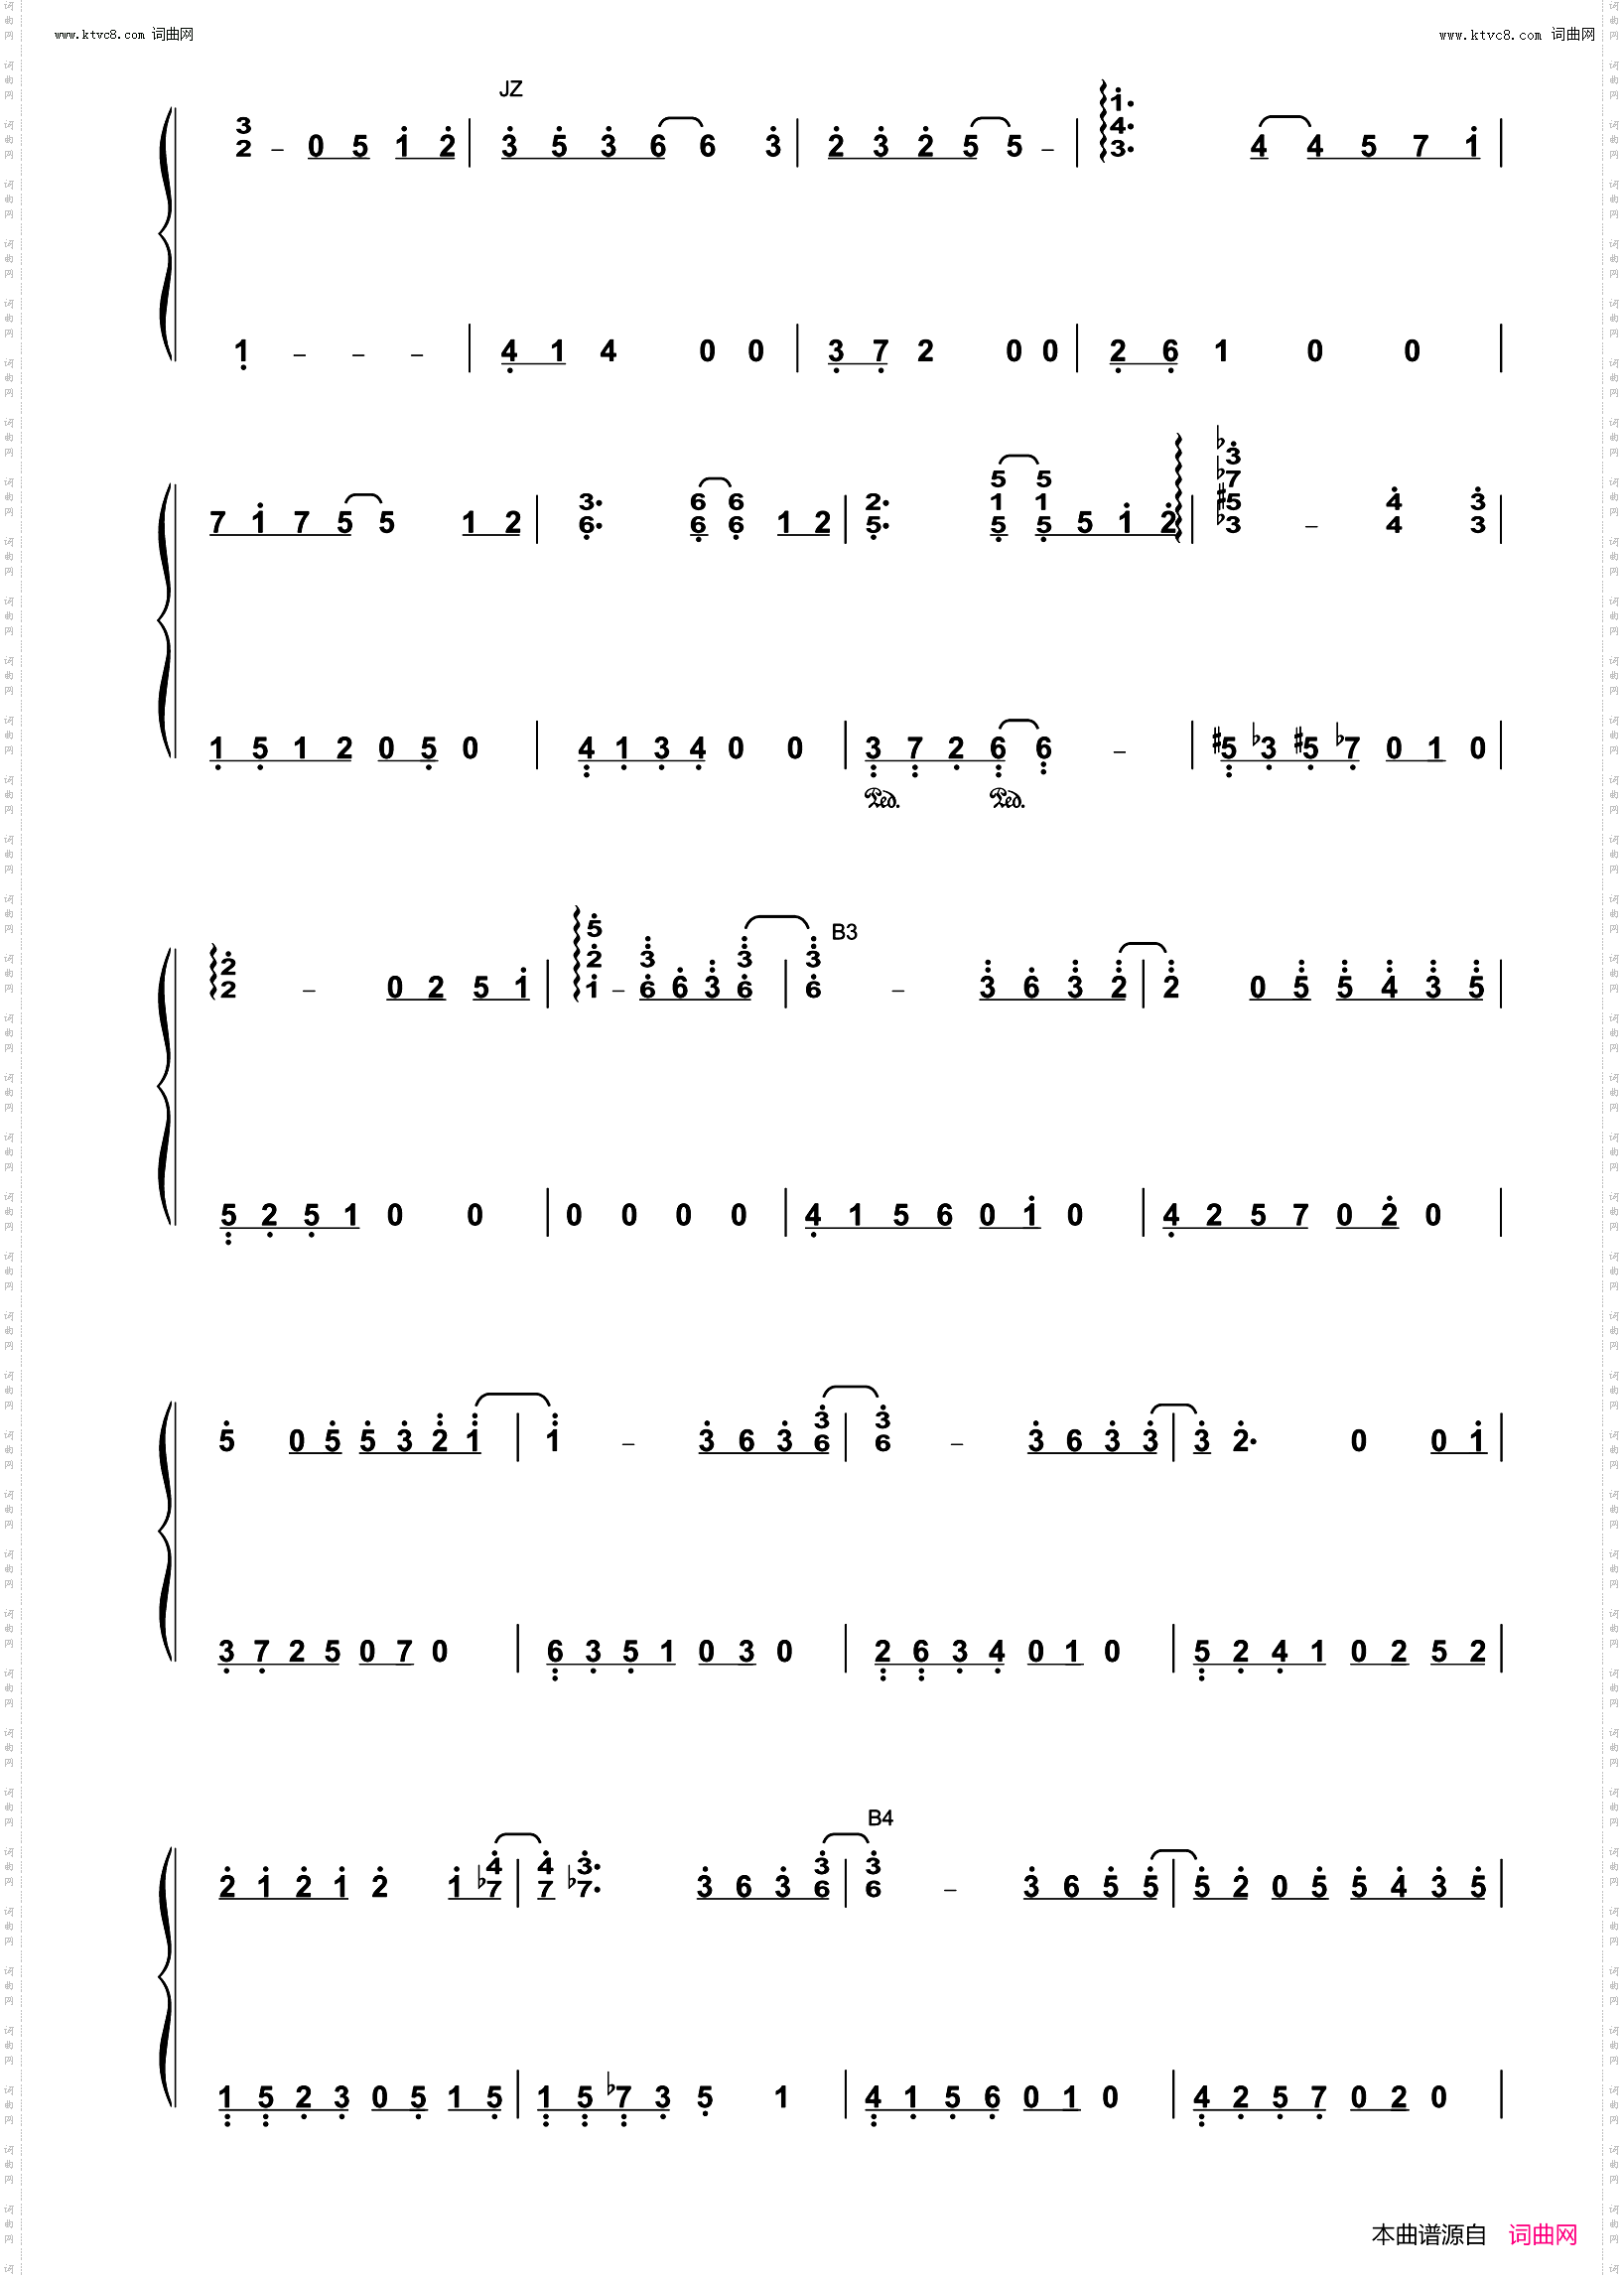 www.ktvc8.com 词曲网 www.ktvc8.com 词曲网
JZ
3 1 4
2 – 0 5 1 2 | 3 5 3 6 6 3 | 2 3 2 5 5 – | 3 4 4 5 7 1 |
1 – – – | 4 1 4 0 0 | 3 7 2 0 0 | 2 6 1 0 0 |
♭3 ♭7
5 5
3 6 6 2 1 1 #5 4 3
7 1 7 5 5 1 2 | 6 6 6 1 2 | 5 5 5 5 1 2 | ♭3 – 4 3 |
1 5 1 2 0 5 0 | 4 1 3 4 0 0 | 3 7 2 6 6 – | #5 ♭3 #5 ♭7 0 1 0 |
Ped. Ped.
5 B3
2 2 3 3 3
2 – 0 2 5 1 | 1 – 6 6 3 6 | 6 – 3 6 3 2 | 2 0 5 5 4 3 5 |
5 2 5 1 0 0 | 0 0 0 0 | 4 1 5 6 0 1 0 | 4 2 5 7 0 2 0 |
3 3
5 0 5 5 3 2 1 | 1 – 3 6 3 6 | 6 – 3 6 3 3 | 3 2. 0 0 1 |
3 7 2 5 0 7 0 | 6 3 5 1 0 3 0 | 2 6 3 4 0 1 0 | 5 2 4 1 0 2 5 2 |
B4
4 4 3 3 3
2 1 2 1 2 1 ♭7 | 7 ♭7. 3 6 3 6 | 6 – 3 6 5 5 | 5 2 0 5 5 4 3 5 |
1 5 2 3 0 5 1 5 | 1 5 ♭7 3 5 1 | 4 1 5 6 0 1 0 | 4 2 5 7 0 2 0 |
本曲谱源自 词曲网